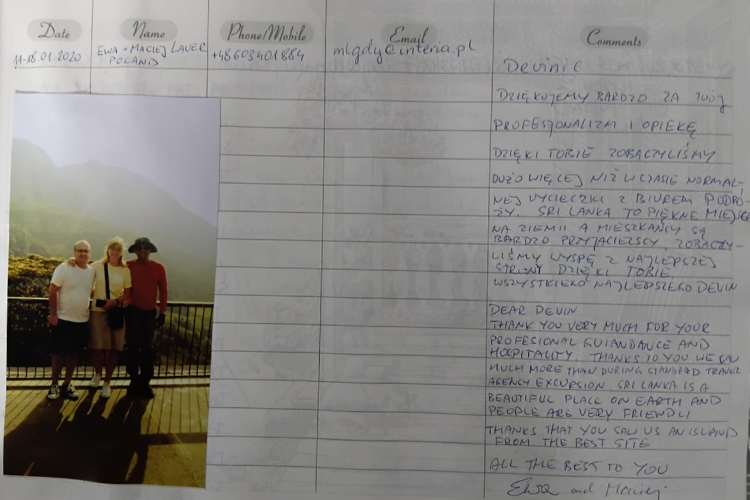 Date Name Phone/Mobile Email Comments
11-18.01.2020 EWA + MACIEJ LAUER +48603401864 mlgdy@interia.pl
POLAND
Devinie
DZIĘKUJEMY BARDZO ZA TWÓJ
PROFESJONALIZM I OPIEKĘ
DZIĘKI TOBIE ZOBACZYLIŚMY
DUŻO WIĘCEJ NIŻ W CZASIE NORMAL-
NEJ WYCIECZKI Z BIUREM PODRÓ-
ŻY. SRI LANKA TO PIĘKNE MIEJSCE
NA ZIEMII A MIESZKAŃCY SĄ
BARDZO PRZYJACIELSCY, ZOBACZY-
LIŚMY WYSPĘ Z NAJLEPSZEJ
STRONY DZIĘKI TOBIE
WSZYSTKIEGO NAJLEPSZEGO DEVIN
DEAR DEVIN
THANK YOU VERY MUCH FOR YOUR
PROFESIONAL GUIANDANCE AND
HOSPITALITY. THANKS TO YOU WE SAW
MUCH MORE THAN DURING STANDARD TRAVEL
AGENCY EXCURSION. SRI LANKA IS A
BEAUTIFUL PLACE ON EARTH AND
PEOPLE ARE VERY FRIENDLI
THANKS THAT YOU SAW US AN ISLAND
FROM THE BEST SITE
ALL THE BEST TO YOU
Ewa and Maciej